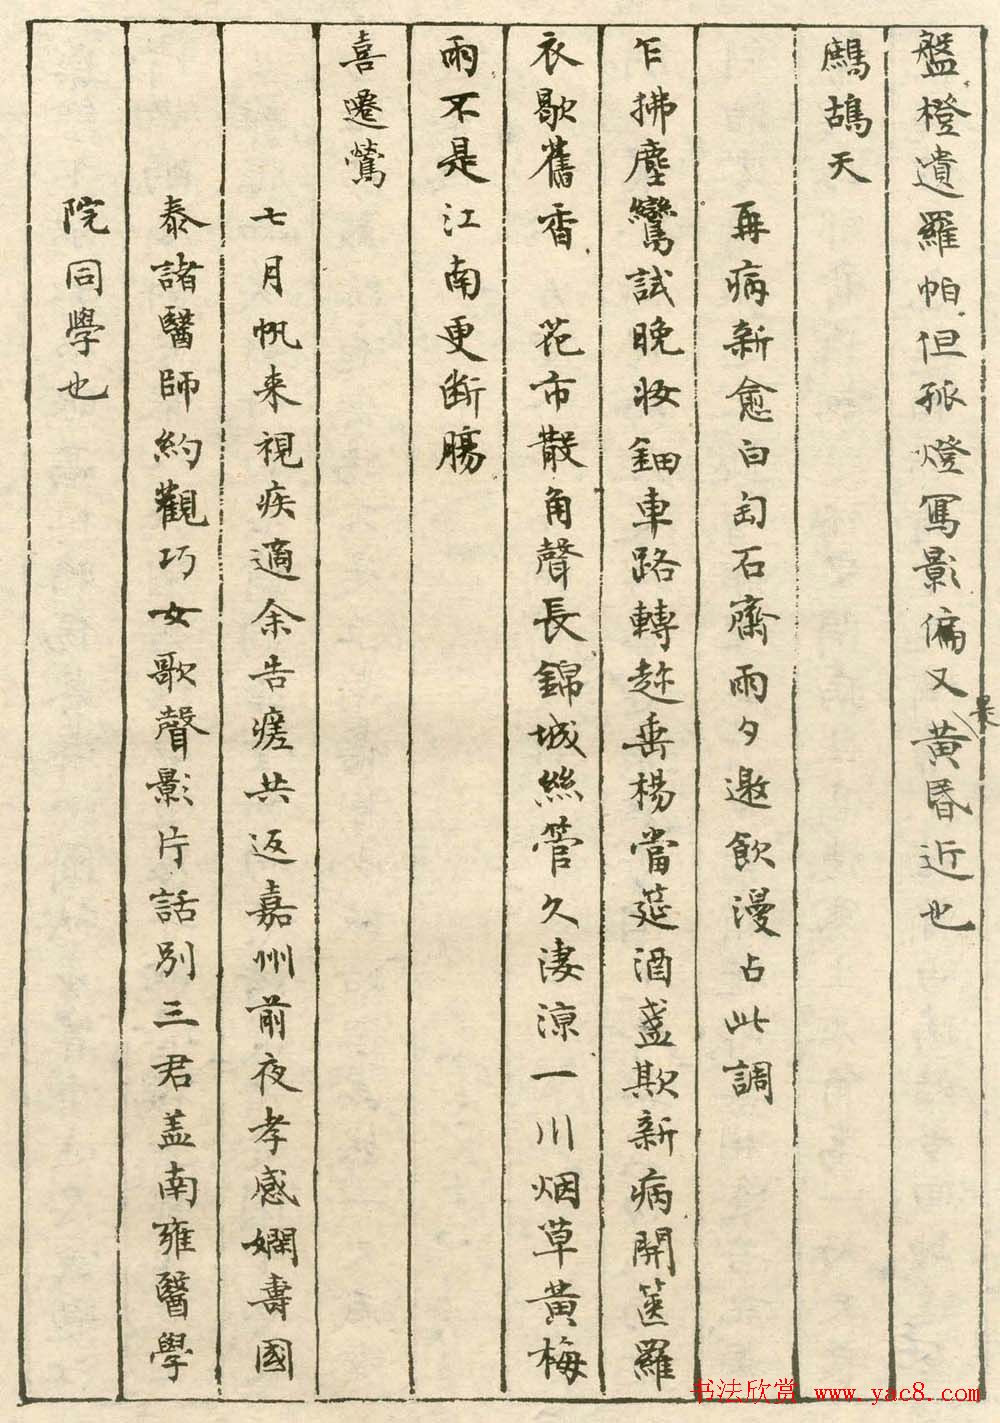 盤橙遺羅帕但孤燈寫影偏又黄昏近也
景
鷓鴣天
再病新愈白匋石齋雨夕邀飲漫占此調
乍拂塵鸞試晚妝鈿車路轉趂垂楊當筵酒盞欺新病開篋羅
衣歇舊香　花市散角聲長錦城絲管久淒涼一川烟草黄梅
雨不是江南更断腸
喜遷鶯
七月帆来視疾適余告瘥共返嘉州前夜孝感嫻壽國
泰諸醫師約觀巧女歌聲影片話别三君盖南雍醫學
院同學也
书法欣赏 www.yac8.com